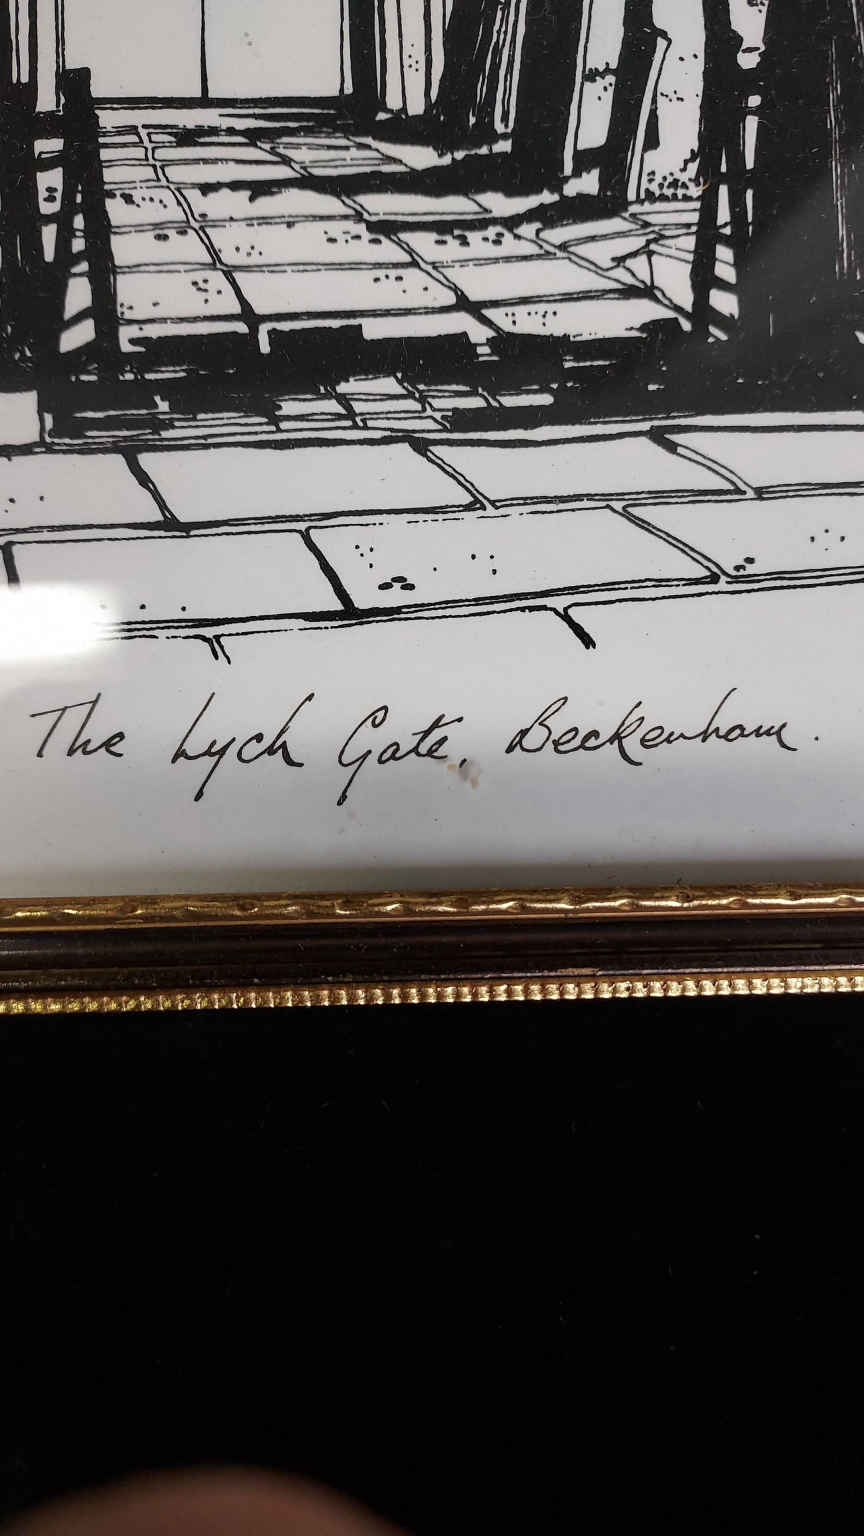 The Lych Gate, Beckenham.